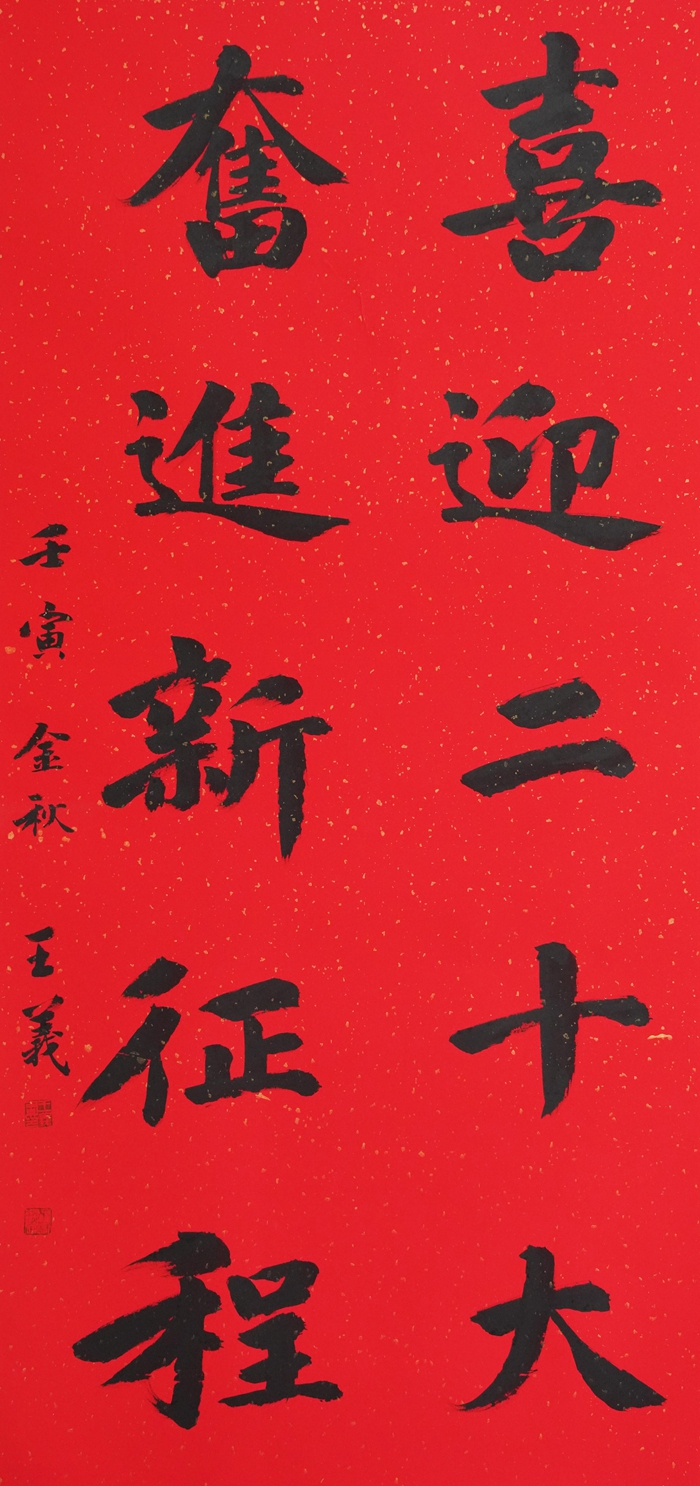 喜迎二十大
奮進新征程
壬寅金秋王義